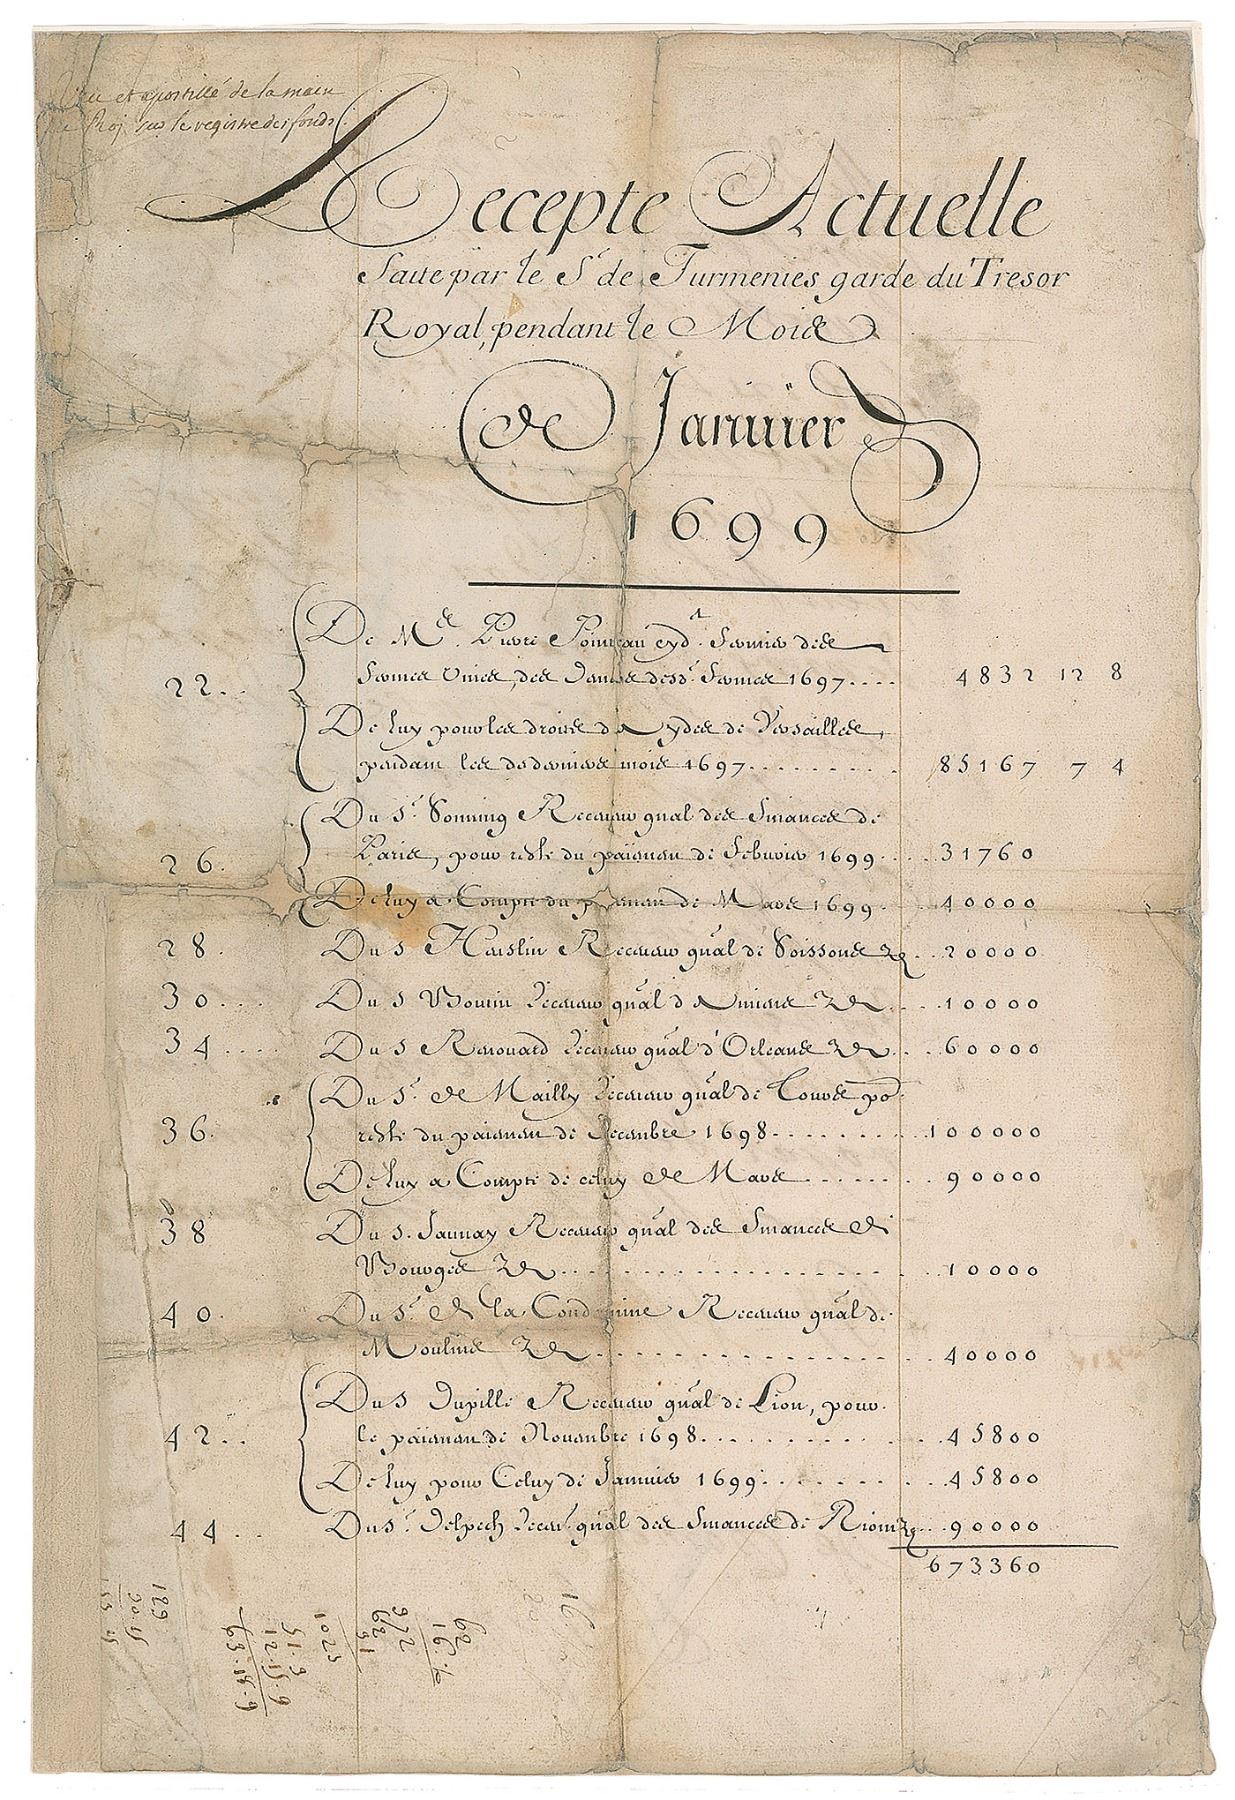 Veu et apostillé de la main
Roj sur le registre des fonds.
Recepte Actuelle
Faite par le Sr de Turmenies garde du Tresor
Royal, pendant le Mois
de Januier
1699
De Me. Pierre Pointeau cyd.t fermier des
22.. fermes Unies, des Janvier 1697.... 4832 12 8
De luy pour les droits d'Aydes de Versailles,
pendant les d. derniers mois 1697........ 85167 7 4
Du Sr. Sonning Receueur gñal des finances de
26. Paris, pour reste du païement de Feburier 1699.... 31760
De luy a Compte du païement de Mars 1699.... 40000
28. Du S Haislin Receueur gñal de Soissons.. 20000
30.... Du S Receueur gñal d'Amiens.... 10000
34.... Du S Renouard Receueur gñal d'Orleans.... 60000
Du Sr. de Mailly Receueur gñal de Tours po.r
36. reste du païement de Decembre 1698......... 100000
De luy a Compte de celuy de Mars....... 90000
38 Du S. Jaunay Receueur gñal des finances de
Bourges................ 10000
40. Du Sr. de la Condamine Receueur gñal de
Moulins................ 40000
Du S Dupille Receueur gñal de Lion, pour
42.. le païement de Nouembre 1698........... 45800
De luy pour Celuy de Januier 1699......... 45800
44.. Du Sr. Delpech Receur. gñal des finances de Riom... 90000
673360
129
20.15
1023
51.3
12.15.9
63.18.9
62
16 1/2
972
62
31
16
20